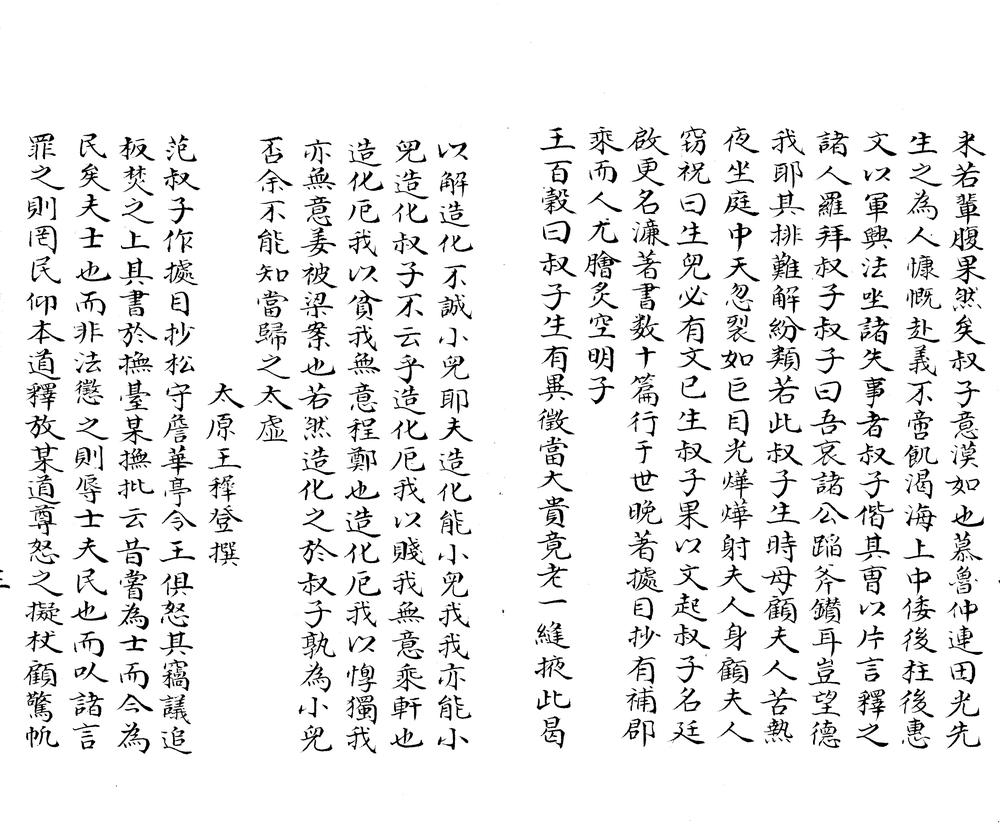 來若輩腹果然矣叔子意漠如也慕魯仲連田光先
生之為人慷慨赴義不啻飢渴海上中倭後柱後惠
文以軍興法坐諸失事者叔子偕其曹以片言釋之
諸人羅拜叔子叔子曰吾哀諸公蹈斧鑕耳豈望德
我耶其排難解紛類若此叔子生時母顧夫人苦熱
夜坐庭中天忽裂如巨目光燁燁射夫人身顧夫人
竊祝曰生兒必有文已生叔子果以文起叔子名廷
啟更名濂著書数十篇行于世晚著據目抄有補郡
乘而人尤膾炙空明子
王百穀曰叔子生有異徵當大貴竟老一縫掖此曷
以解造化不誠小兒耶夫造化能小兒我我亦能小
兒造化叔子不云乎造化厄我以賤我無意乘軒也
造化厄我以貧我無意程鄭也造化厄我以惸獨我
亦無意姜被梁案也若然造化之於叔子孰為小兒
否余不能知當歸之太虛
太原王穉登撰
范叔子作據目抄松守詹華亭令王俱怒其竊議追
板焚之上其書於撫臺某撫批云昔嘗為士而今為
民矣夫士也而非法懲之則辱士夫民也而以諸言
罪之則罔民仰本道釋放某道尊怒之擬杖顧驚帆
三